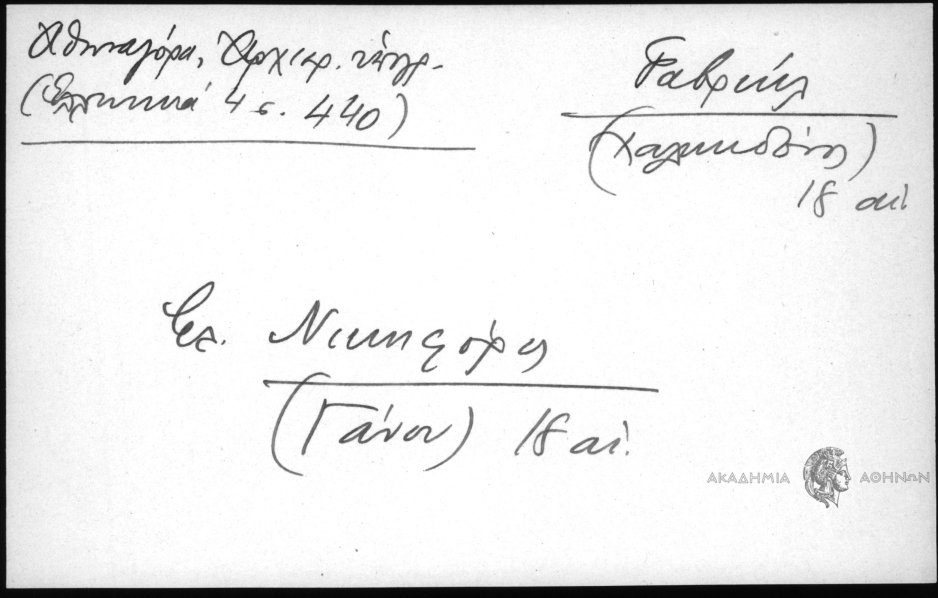 Ἀθηναγόρα, Ἀρχιερ.
(Ἑλληνικά 4 σ. 440)
Γαβριήλ
(Χαλκηδόνος)
18 αἰ.
Βλ. Νικηφόρος
(Γάνου) 18 αἰ.
ΑΚΑΔΗΜΙΑ ΑΘΗΝΩΝ